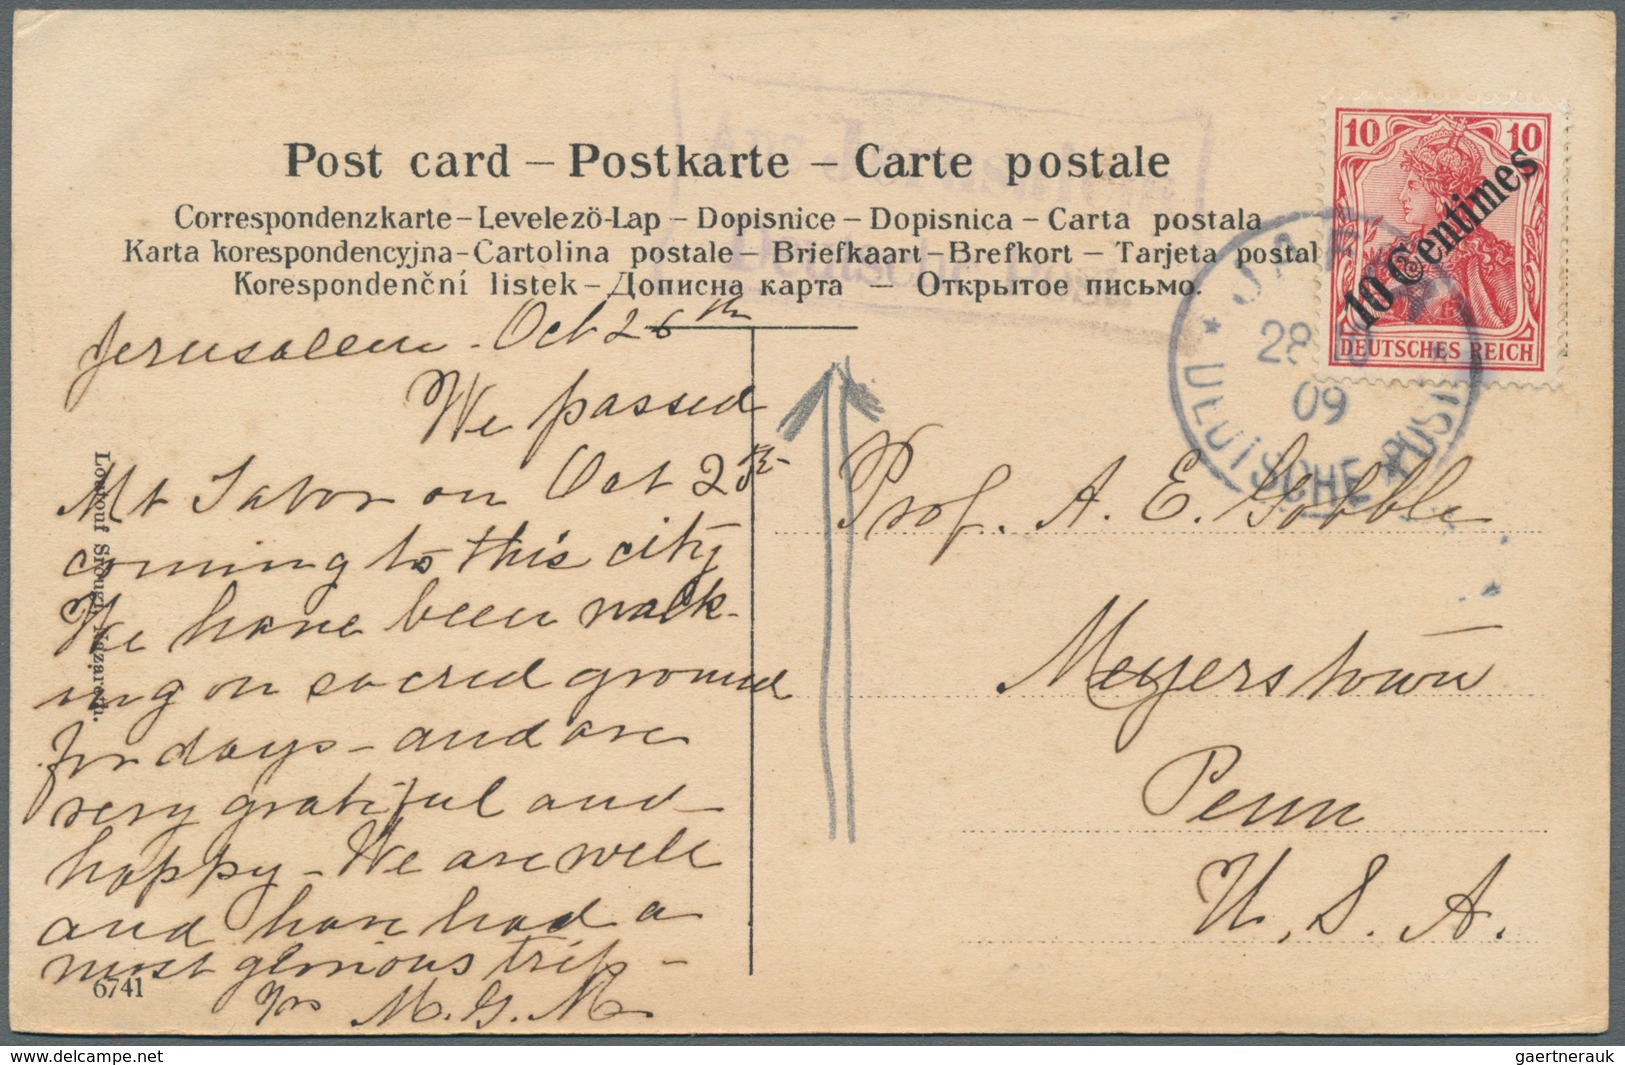 Post card – Postkarte – Carte postale
Correspondenzkarte – Levelező-Lap – Dopisnice – Dopisnica – Carta postala
Karta korespondencyjna – Cartolina postale – Briefkaart – Brefkort – Tarjeta postal
Korespondenční listek – Дописна карта – Открытое письмо.
10 10
10 Centimes
DEUTSCHES REICH
JAFFA
28
09
DEUTSCHE POST
Jerusalem. Oct 26th
We passed
Mt Tabor on Oct 25th
coming to this city
We have been walk-
ing on sacred ground
for days – and are
very grateful and
happy – We are well
and have had a
most glorious trip –
Yrs M. G. M
Prof. A. E. Gobble
Meyerstown
Penn
U. S. A.
Nazareth.
6741
delcampe.net
gaertnerauk